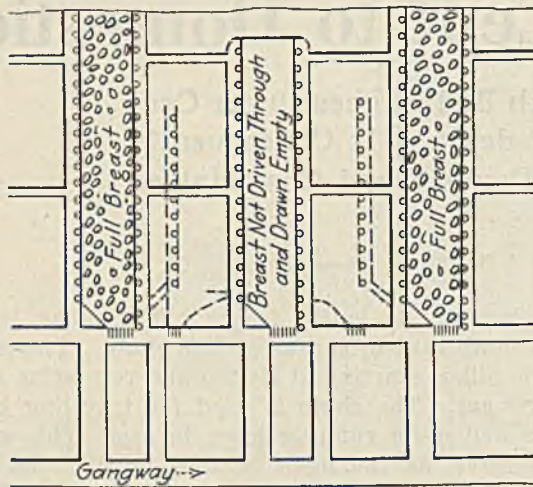 Full Breast
Breast Not Driven Through
and Drawn Empty
Full Breast
Gangway-->